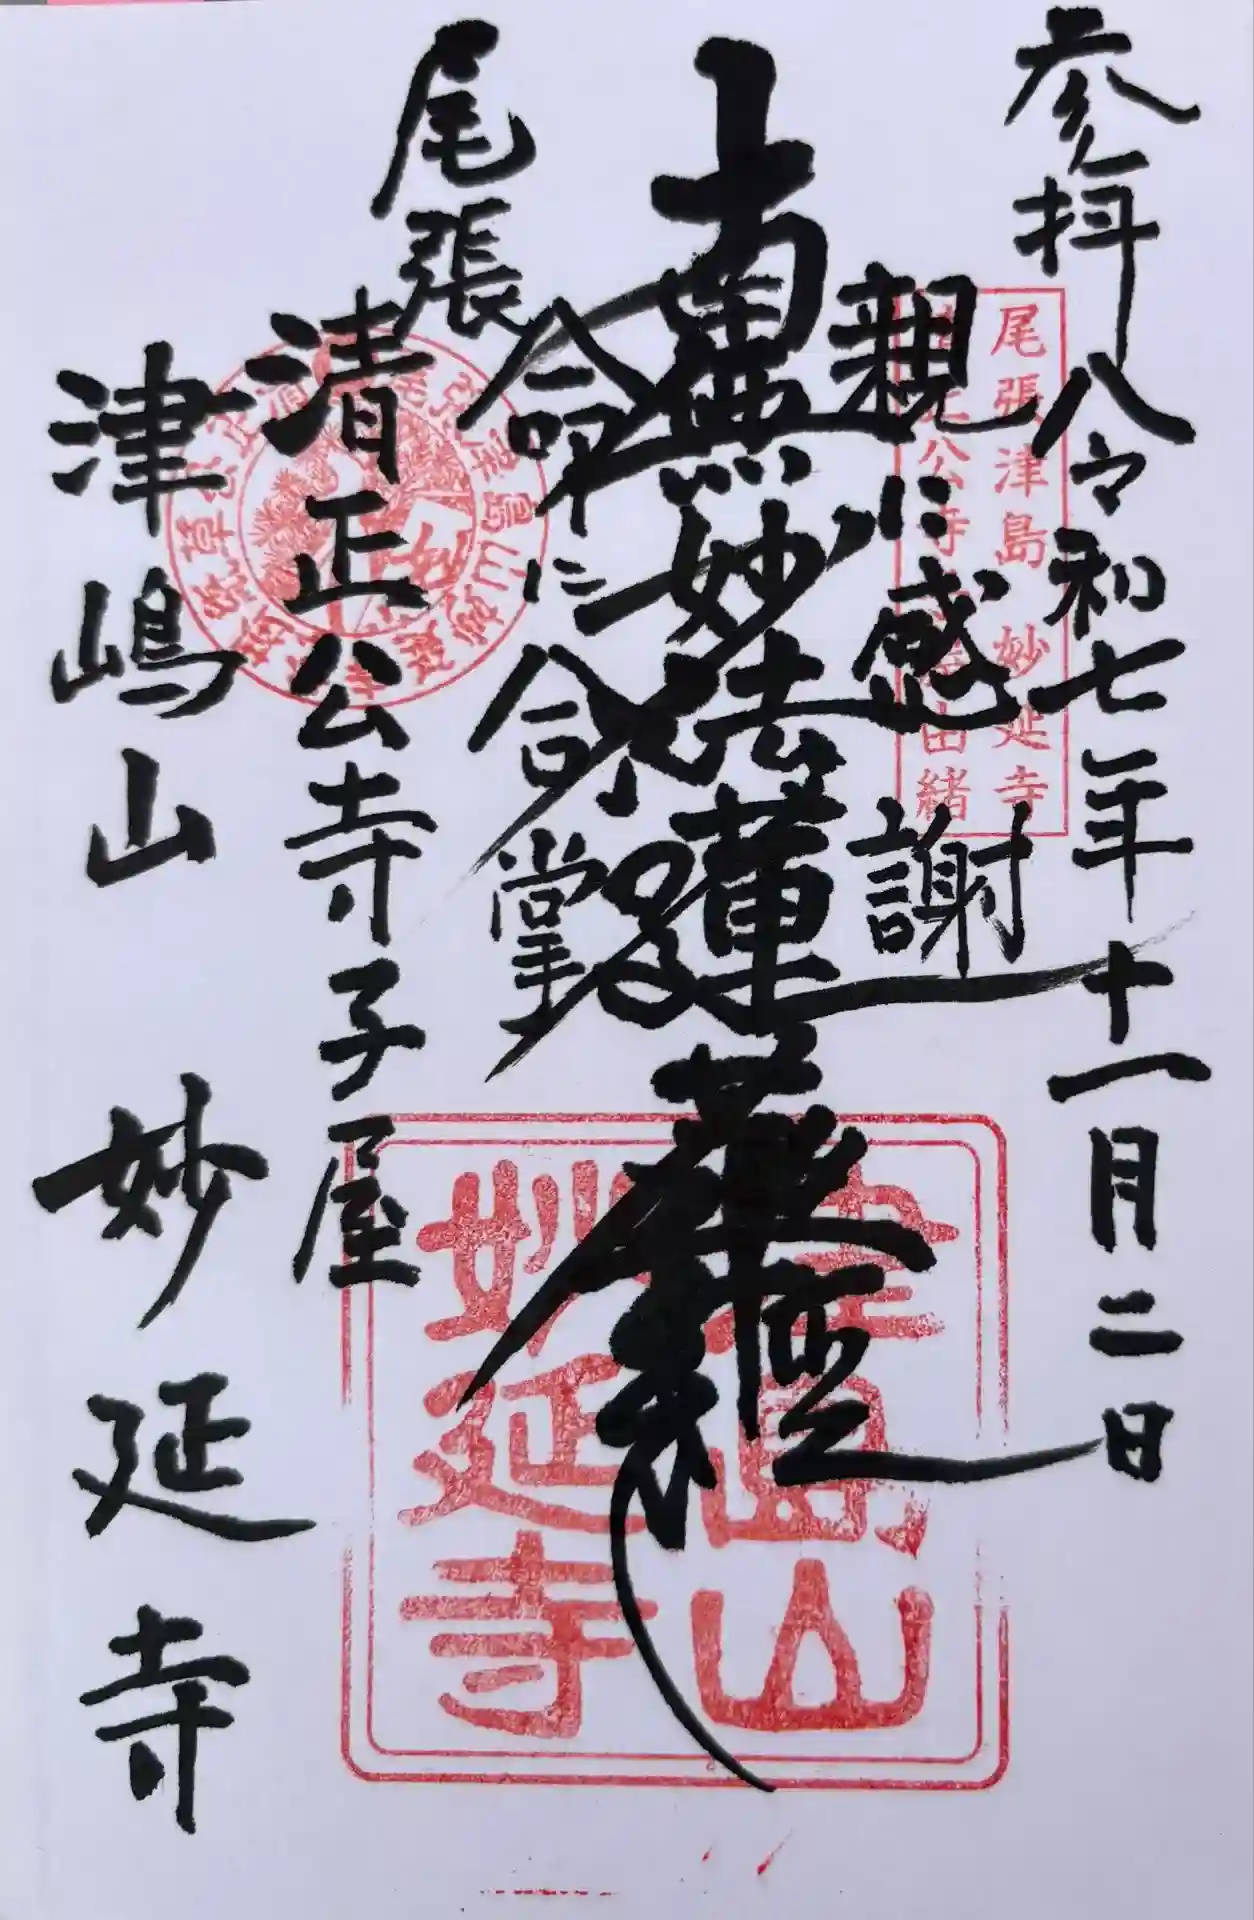 参拝 令和七年十一月二日
親に感謝
南無妙法蓮華経
命に合掌
尾張
清正公寺子屋
津嶋山 妙延寺
尾張津島 妙延寺
公寺
由緒
津島山
妙延寺